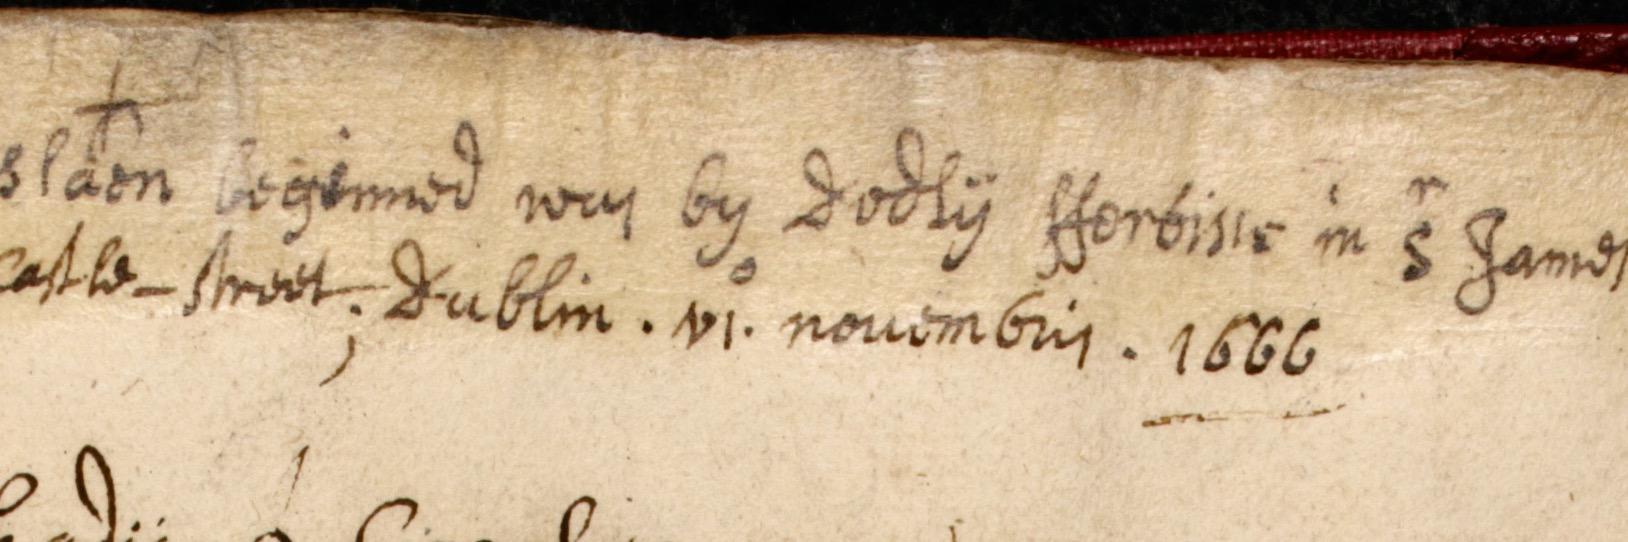 slaen beginned was by Dudly fferbisie in Sr James
Castle-street, Dublin. vi.o nouembris. 1666